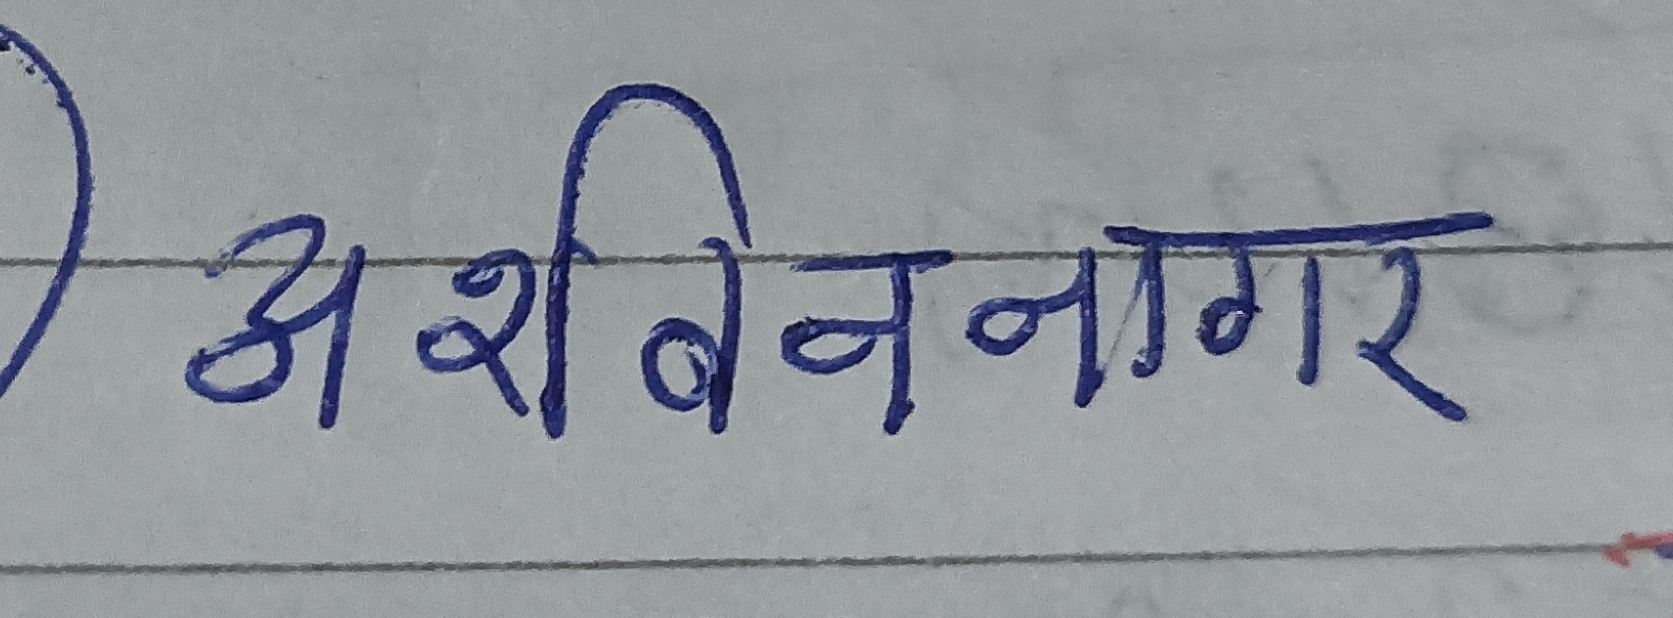 अश्विन नागर